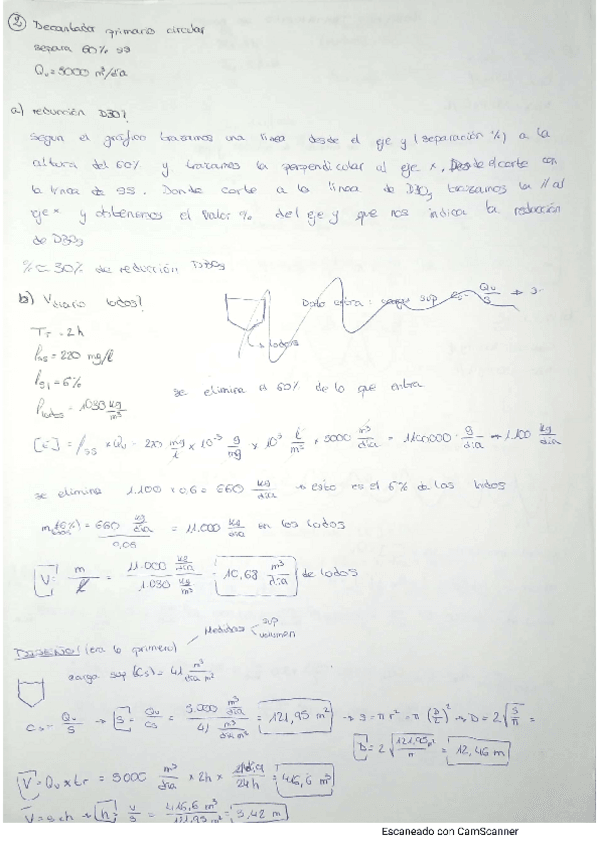 ② Decantador primario circular
separa 60% ss
Qv = 5000 m³/día
a) reducción DBO?
Según el gráfico trazamos una línea desde el eje y (separación %) a la
altura del 60% y trazamos la perpendicular al eje x, Desde el corte con
la línea de SS. Donde corte a la línea de DBO₅ trazamos la // al
eje x y obtenemos el valor % del eje y que nos indica la reducción
de DBO₅
% ≈ 30% de reducción DBO₅
b) V diario lodos?
Dato extra: carga sup Cs = Qv/S → S
Tr = 2h
ρss = 220 mg/l
ρs1 = 6%
ρlodos = 1030 kg/m³
↳ lodos
se elimina el 60% de lo que entra
[E] = ρss × Qv = 220 mg/l × 10⁻³ g/mg × 10³ l/m³ × 5000 m³/día = 1100000 g/día → 1.100 kg/día
se elimina 1.100 × 0,6 = 660 kg/día → esto es el 6% de los lodos
m (6%) = 660 kg/día / 0,06 = 11.000 kg/día en los lodos
V = m/ρ = 11.000 kg/día / 1.030 kg/m³ = 10,68 m³/día de lodos
DISEÑO! (era lo primero) → Medidas sup volumen
carga sup (Cs) = 41 m³/día m²
Cs = Qv/S → S = Qv/Cs = 5.000 m³/día / 41 m³/día m² = 121,95 m² → S = π r² = π (D/2)² → D = 2 √S/π =
D = 2 √121,95 m²/π = 12,46 m
V = Qv × tr = 5000 m³/día × 2h × 1 día/24h = 416,6 m³
V = S · h → h = V/S = 416,6 m³ / 121,95 m² = 3,42 m
Escaneado con CamScanner